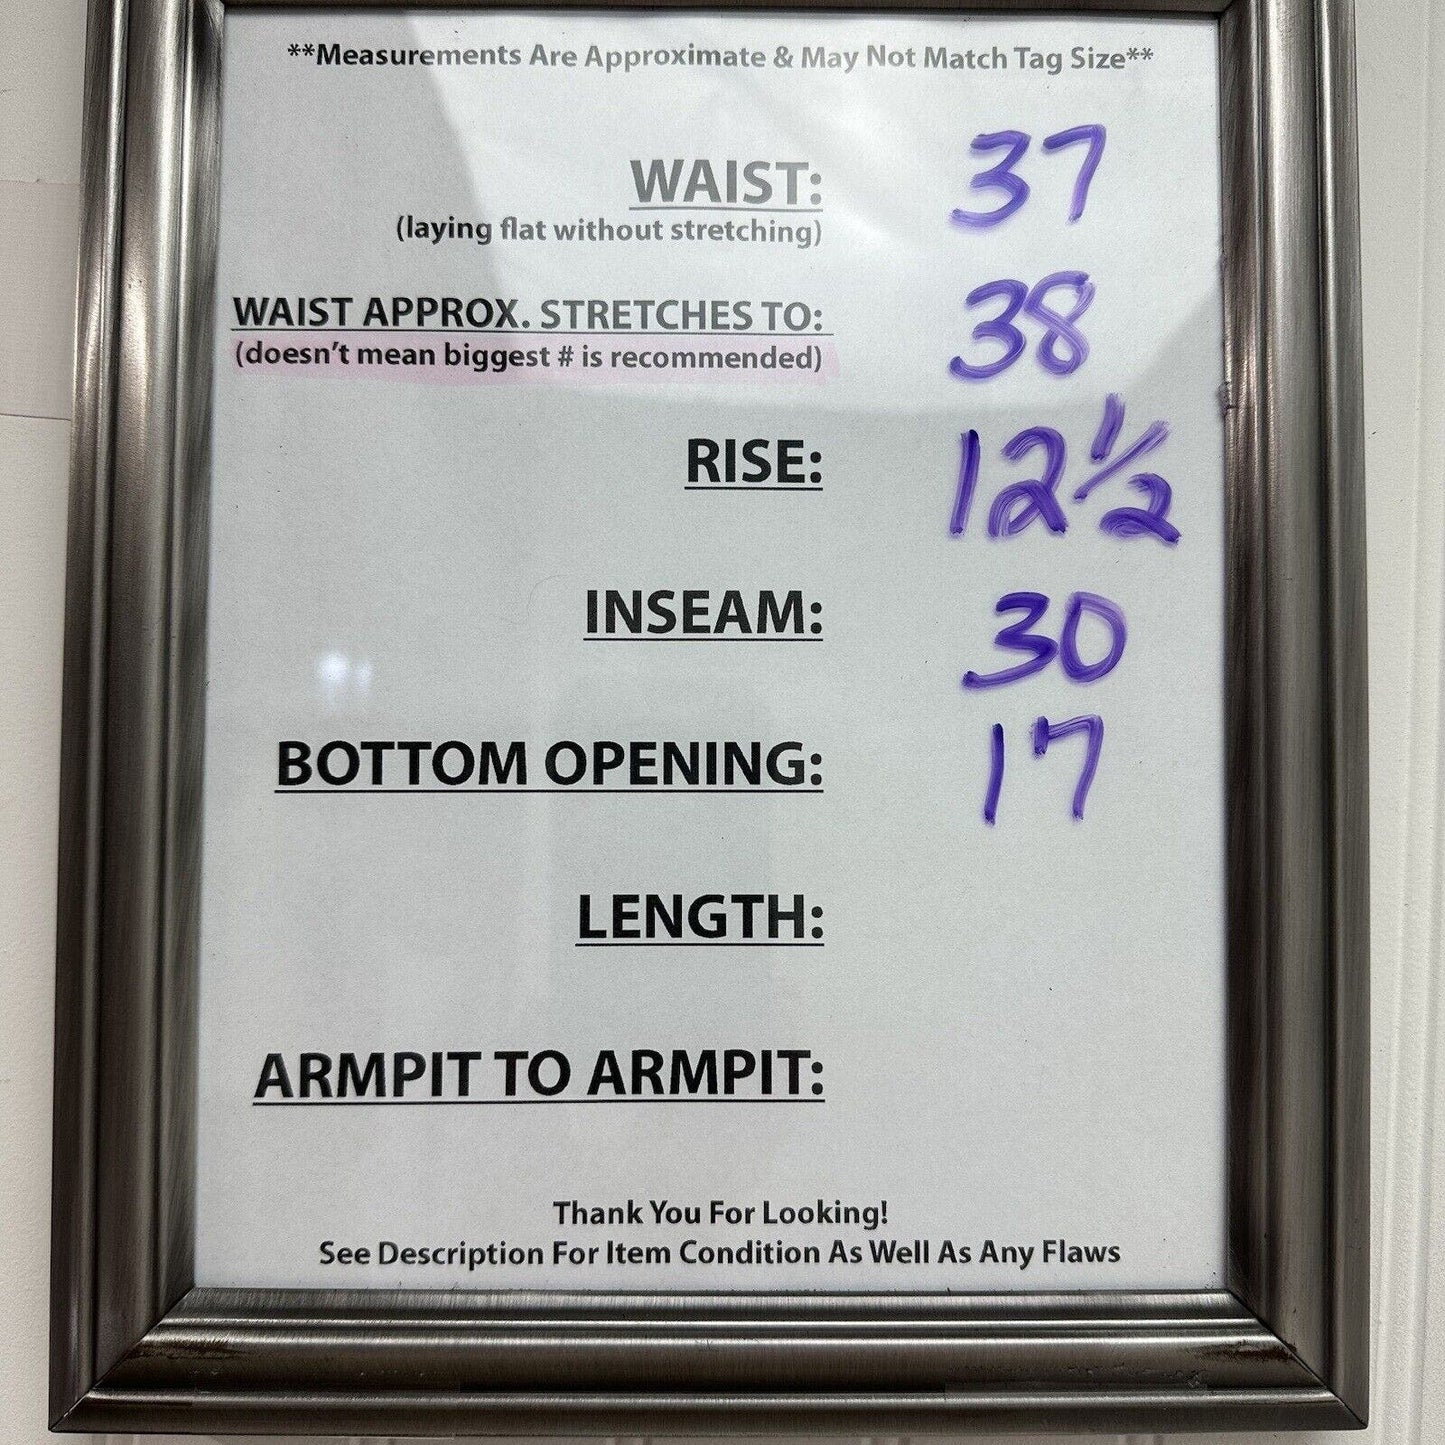 **Measurements Are Approximate & May Not Match Tag Size**
WAIST: 37
(laying flat without stretching)
WAIST APPROX. STRETCHES TO: 38
(doesn't mean biggest # is recommended)
RISE: 12 1/2
INSEAM: 30
BOTTOM OPENING: 17
LENGTH:
ARMPIT TO ARMPIT:
Thank You For Looking!
See Description For Item Condition As Well As Any Flaws